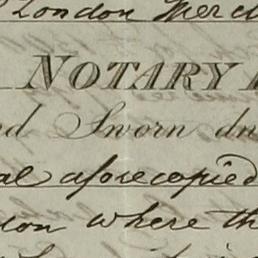 London Merc
NOTARY
nd Sworn du
al aforecopied
ion where th